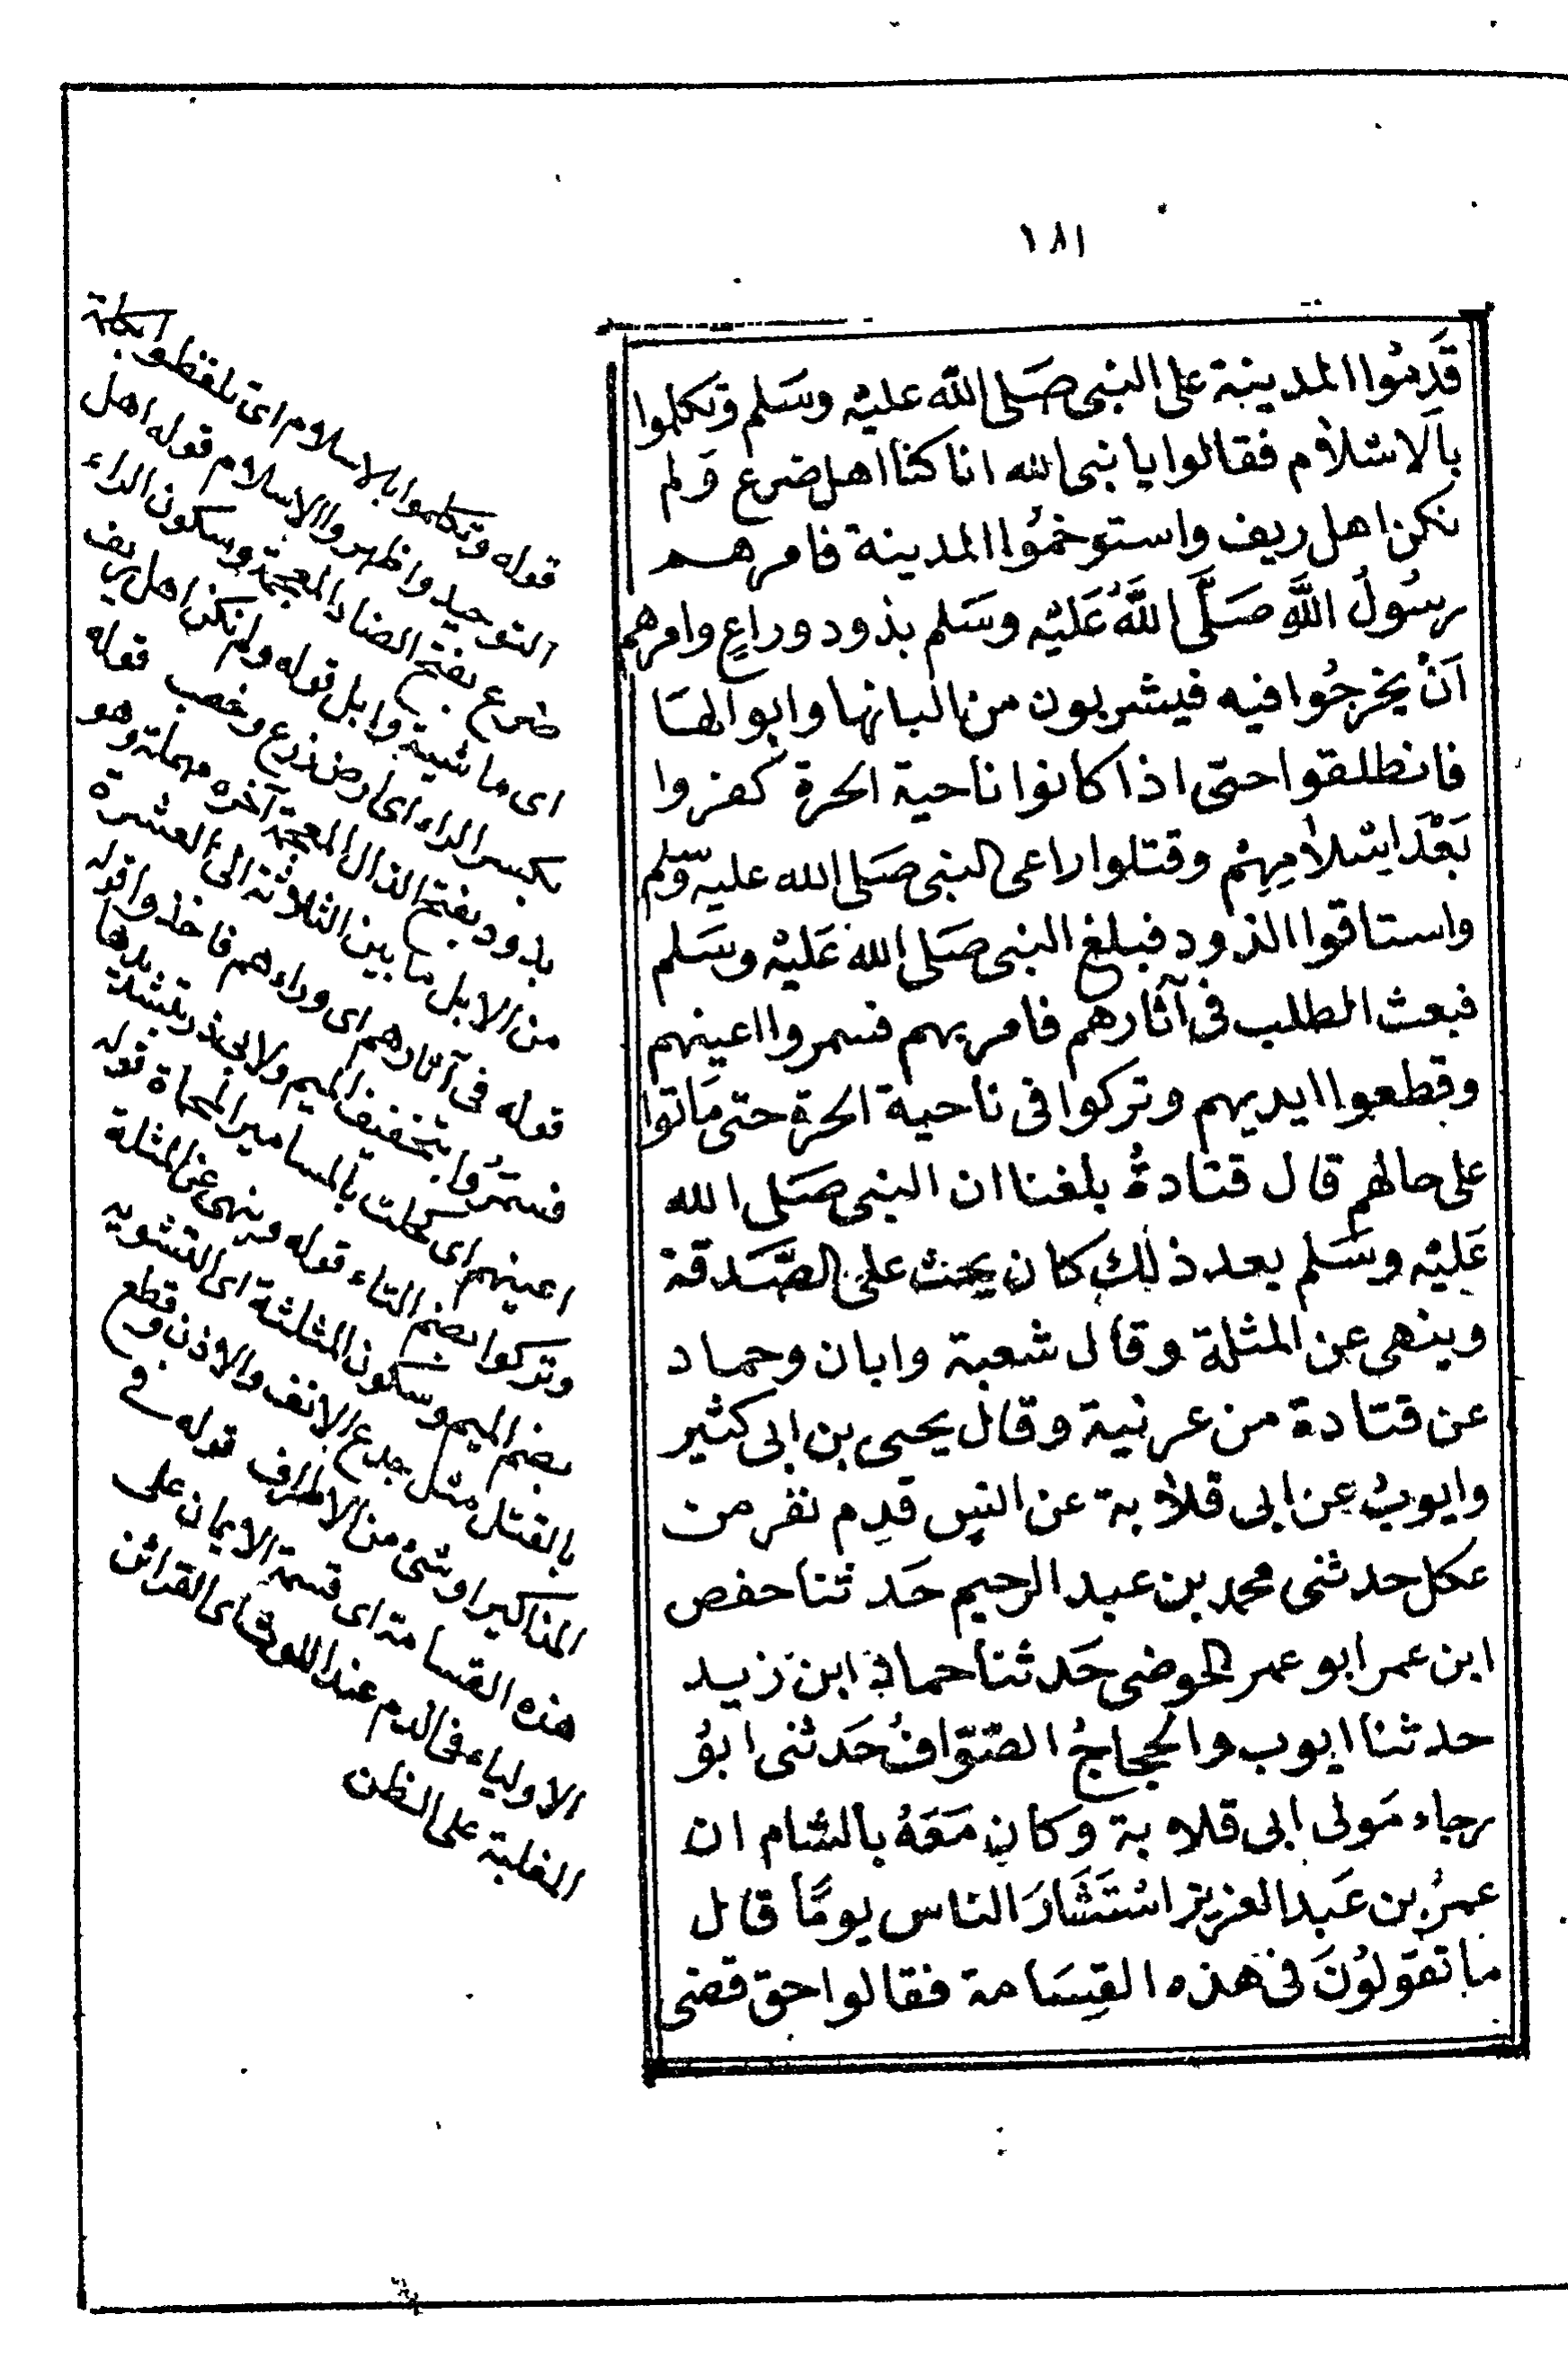 ١٨١
قَدِمُوا المدينة على النبى صَلى الله عليْه وسَلم وتكلموا
بالاسْلام فقالوا يا نبى الله انا كنا اهل ضرع وَلم
نكن اهل ريف واستوخمُوا المدينة فامرهم
رسُولُ اللَّهِ صَلَّى اللَّهُ عَلَيْه وسَلم بذود وراعٍ وامرهم
اَنْ يخرجُوا فيه فيشربون من البانها وابوالهَا
فانطلقوا حتى اذا كانوا ناحية الحرة كفروا
بَعْدَ اِسْلامِهِمْ وقتلوا راعى النبى صَلى الله عليه وسلم
واستاقوا الذود فبلغ النبى صَلى الله عَليْه وسَلم
فبعث الطلب فى آثارهم فامر بهم فسمروا اعينهم
وقطعوا ايديهم وتركوا فى ناحية الحرة حتى مَاتوا
على حالهم قال قتادةُ بلغنا ان النبى صَلى الله
عَليْه وسَلم بعد ذلك كان يحث على الصَّدقة
وينهى عن المثلة وقال شعبة وابان وحماد
عن قتادة من عرنية وقال يحيى بن ابى كثير
وايوبُ عن ابى قلابة عن انس قدِم نفر من
عكل حدثنى محمد بن عبد الرحيم حَدثنا حفص
ابن عمر ابو عمر الحوضى حَدثنا حماد ابن زيد
حدثنا ايوب والحجاجُ الصَّوّافُ حَدثنى ابوُ
رجاء مَولى ابى قلابة وكان مَعَهُ بالشام ان
عمرُ بن عَبد العزيز اسْتَشَارَ الناس يومًا قال
ما تقولوُنَ فى هذه القِسَامة فقالوا حق قضى
قوله وتكلموا بالاسلام اى تلفظوا بكلمة
التوحيد واظهروا الاسلام قوله اهل
ضرع بفتح الضاد المعجمة وسكون الراء
اى ماشية وابل قوله ولم نكن اهل ريف
بكسر الراء اى ارض زرع وخصب قوله
بذود بفتح الذال المعجمة آخره مهملة وهو
من الابل ما بين الثلاثة الى العشرة
قوله فى آثارهم اى وراءهم فاخذوا قوله
فسمَرُوا بتخفيف الميم ولابى ذر بتشديدها
اعينهم اى كحلت بالمسامير المحماة قوله
وتركوا بضم التاء قوله وينهى عن المثلة
بضم الميم وسكون المثلثة اى التشويه
بالقتل مثل جدع الانف والاذن وقطع
المذاكير او شئ من الاطراف قوله فى
هذه القسامة اى قسمة الايمان على
الاولياء فى الدم عند اللوث اى القرائن
المغلبة على الظن